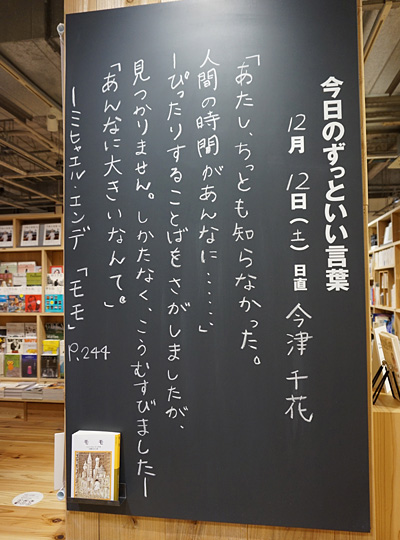 今日のずっといい言葉
12月12日(土) 日直 今津 千花
「あたし、ちっとも知らなかった。
人間の時間があんなに・・・・・・」
ーぴったりすることばをさがしましたが、
見つかりません。しかたなく、こうむすびましたー
「あんなに大きいなんて。」
ーミヒャエル・エンデ 「モモ」
P.244
モモ